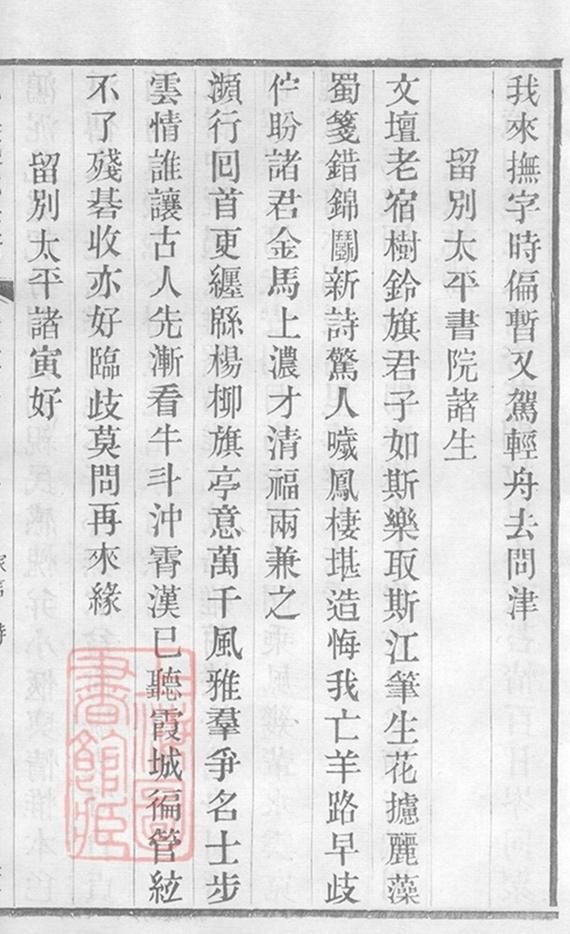 我來撫字時偏暫又駕輕舟去問津
留別太平書院諸生
文壇老宿樹鈴旗君子如斯樂取斯江筆生花攄麗藻
蜀箋錯錦鬭新詩驚人噦鳳棲堪造悔我亡羊路早歧
佇盼諸君金馬上濃才清福兩兼之
瀕行回首更纏緜楊柳旗亭意萬千風雅羣爭名士步
雲情誰讓古人先漸看牛斗沖霄漢已聽霞城徧管絃
不了殘碁收亦好臨歧莫問再來緣
留別太平諸寅好